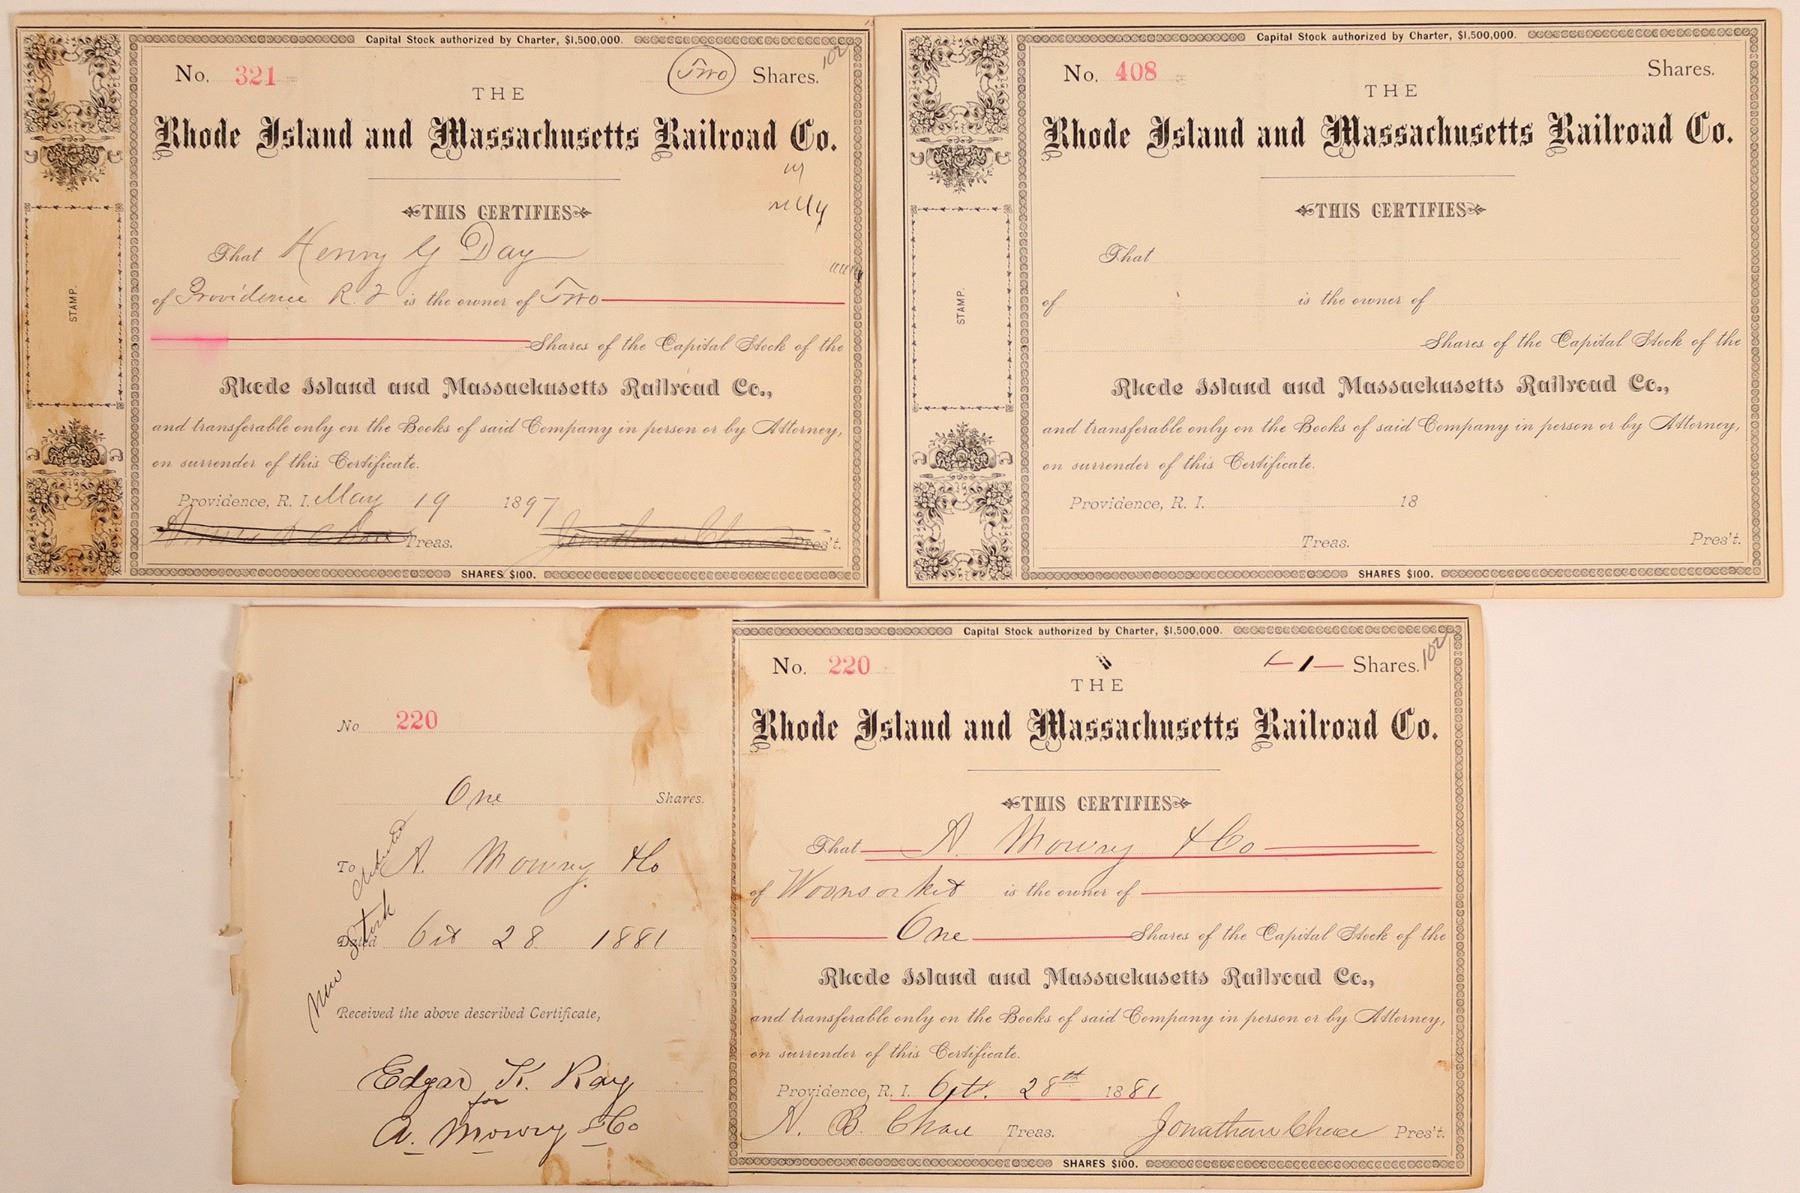 Capital Stock authorized by Charter, $1,500,000.
No. 321 Two Shares. 102
THE
Rhode Island and Massachusetts Railroad Co.
THIS CERTIFIES
That Henry G Day
of Providence R. I is the owner of Two
Shares of the Capital Stock of the
Rhode Island and Massachusetts Railroad Co.,
and transferable only on the Books of said Company in person or by Attorney,
on surrender of this Certificate.
Providence, R. I. May 19 1897
Treas. Jonathan Chace Pres't.
SHARES $100.
STAMP.
Capital Stock authorized by Charter, $1,500,000.
No. 408 Shares.
THE
Rhode Island and Massachusetts Railroad Co.
THIS CERTIFIES
That
of is the owner of
Shares of the Capital Stock of the
Rhode Island and Massachusetts Railroad Co.,
and transferable only on the Books of said Company in person or by Attorney,
on surrender of this Certificate.
Providence, R. I. 18
Treas. Pres't.
SHARES $100.
STAMP.
No 220
One Shares.
To A. Mowry & Co
Dated Oct 28 1881
New Stock
Received the above described Certificate,
Edgar K. Ray
for
A. Mowry & Co
Capital Stock authorized by Charter, $1,500,000.
No. 220 1 Shares. 102
THE
Rhode Island and Massachusetts Railroad Co.
THIS CERTIFIES
That A. Mowry & Co
of Woonsocket is the owner of
One Shares of the Capital Stock of the
Rhode Island and Massachusetts Railroad Co.,
and transferable only on the Books of said Company in person or by Attorney,
on surrender of this Certificate.
Providence, R. I. Oct. 28th 1881
A. B. Chace Treas. Jonathan Chace Pres't.
SHARES $100.